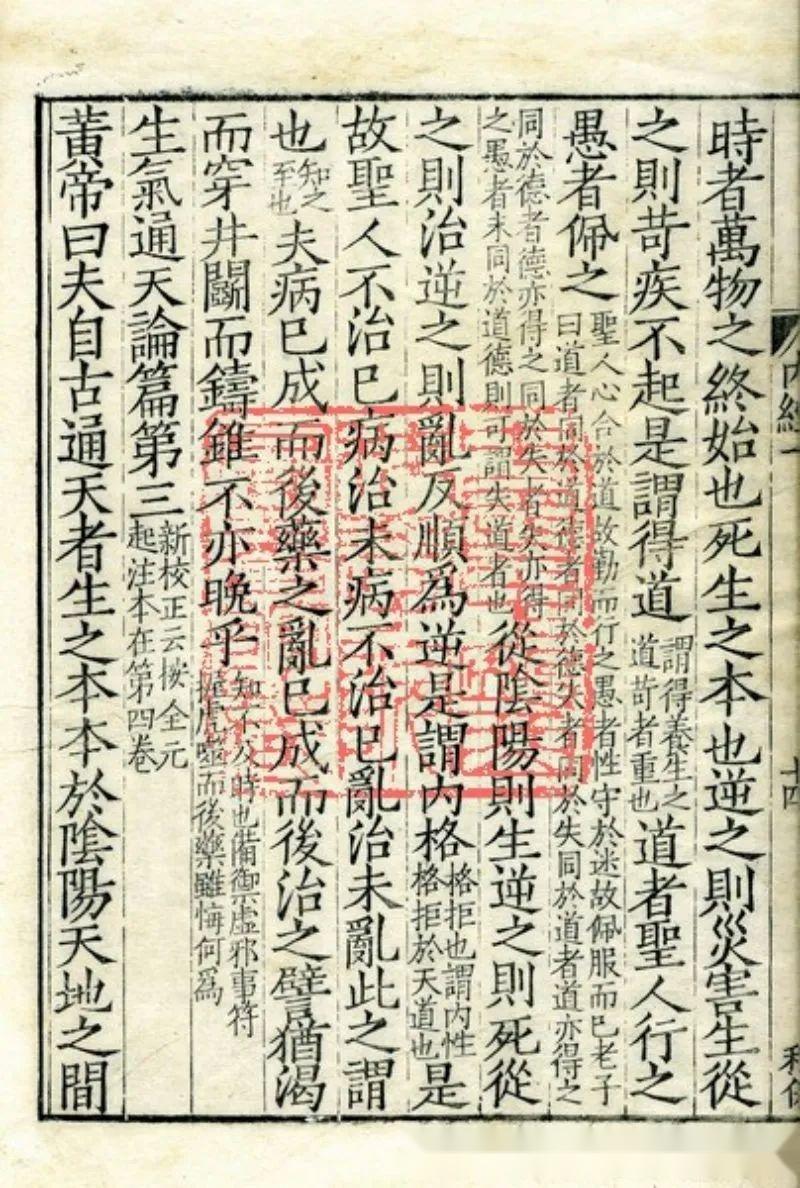 時者萬物之終始也死生之本也逆之則災害生從
之則苛疾不起是謂得道謂得養生之道苛者重也道者聖人行之
愚者佩之聖人心合於道故勤而行之愚者性守於迷故佩服而已老子曰道者同於道德者同於德失者同於失同於道者道亦得之
同於德者德亦得之同於失者失亦得之愚者未同於道德則可謂失道者也從陰陽則生逆之則死從
之則治逆之則亂反順爲逆是謂内格格拒也謂内性格拒於天道也是
故聖人不治已病治未病不治已亂治未亂此之謂
也知之至也夫病已成而後藥之亂已成而後治之譬猶渴
而穿井鬭而鑄錐不亦晚乎知不及時也備禦虚邪事符握虎噬而後藥雖悔何爲
生氣通天論篇第三新校正云按全元起注本在第四卷
黄帝曰夫自古通天者生之本本於陰陽天地之間
内經一
十四